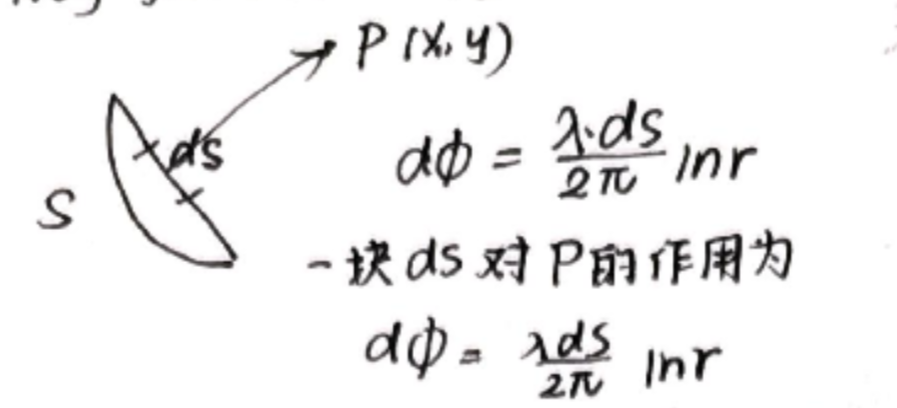 P(x,y)
ds
S
dϕ = λ·ds/2π lnr
一块ds对P的作用为
dϕ = λds/2π lnr